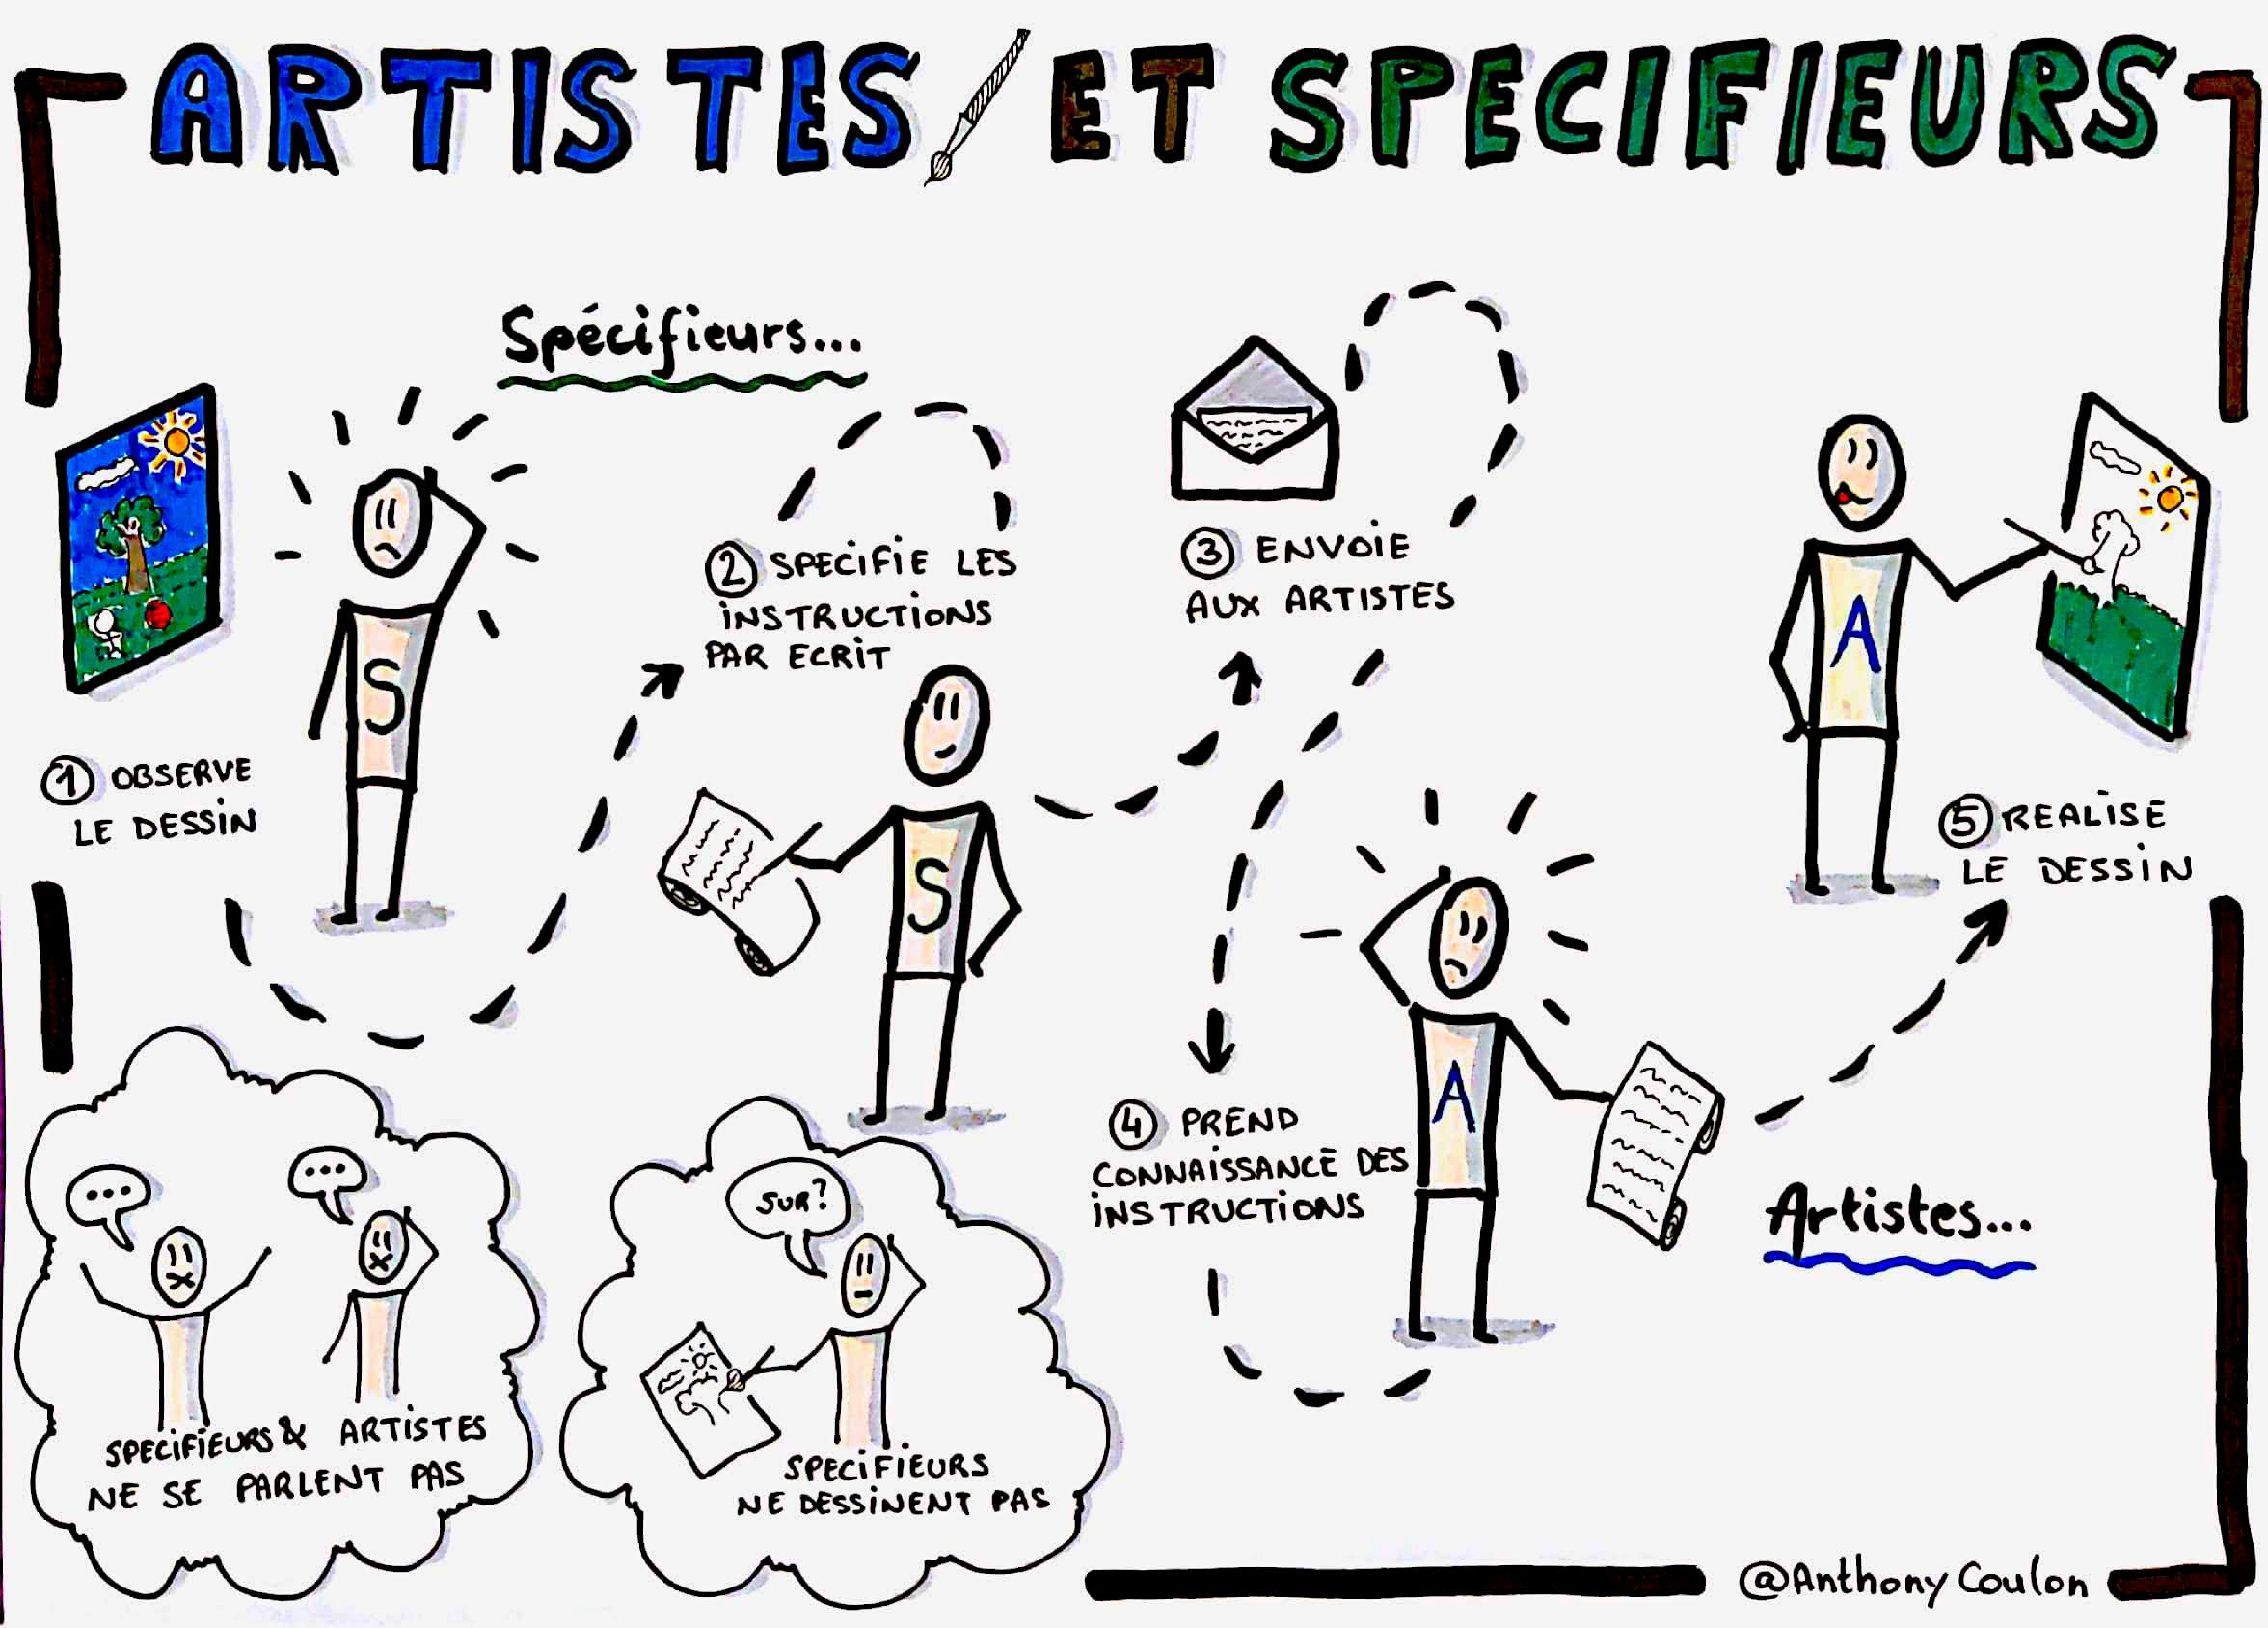 ARTISTES ET SPECIFIEURS
Spécifieurs...
① OBSERVE
LE DESSIN
② SPECIFIE LES
INSTRUCTIONS
PAR ECRIT
③ ENVOIE
AUX ARTISTES
④ PREND
CONNAISSANCE DES
INSTRUCTIONS
⑤ REALISE
LE DESSIN
Artistes...
S
S
A
A
...
...
SPECIFIEURS & ARTISTES
NE SE PARLENT PAS
SUR?
SPECIFIEURS
NE DESSINENT PAS
@Anthony Coulon